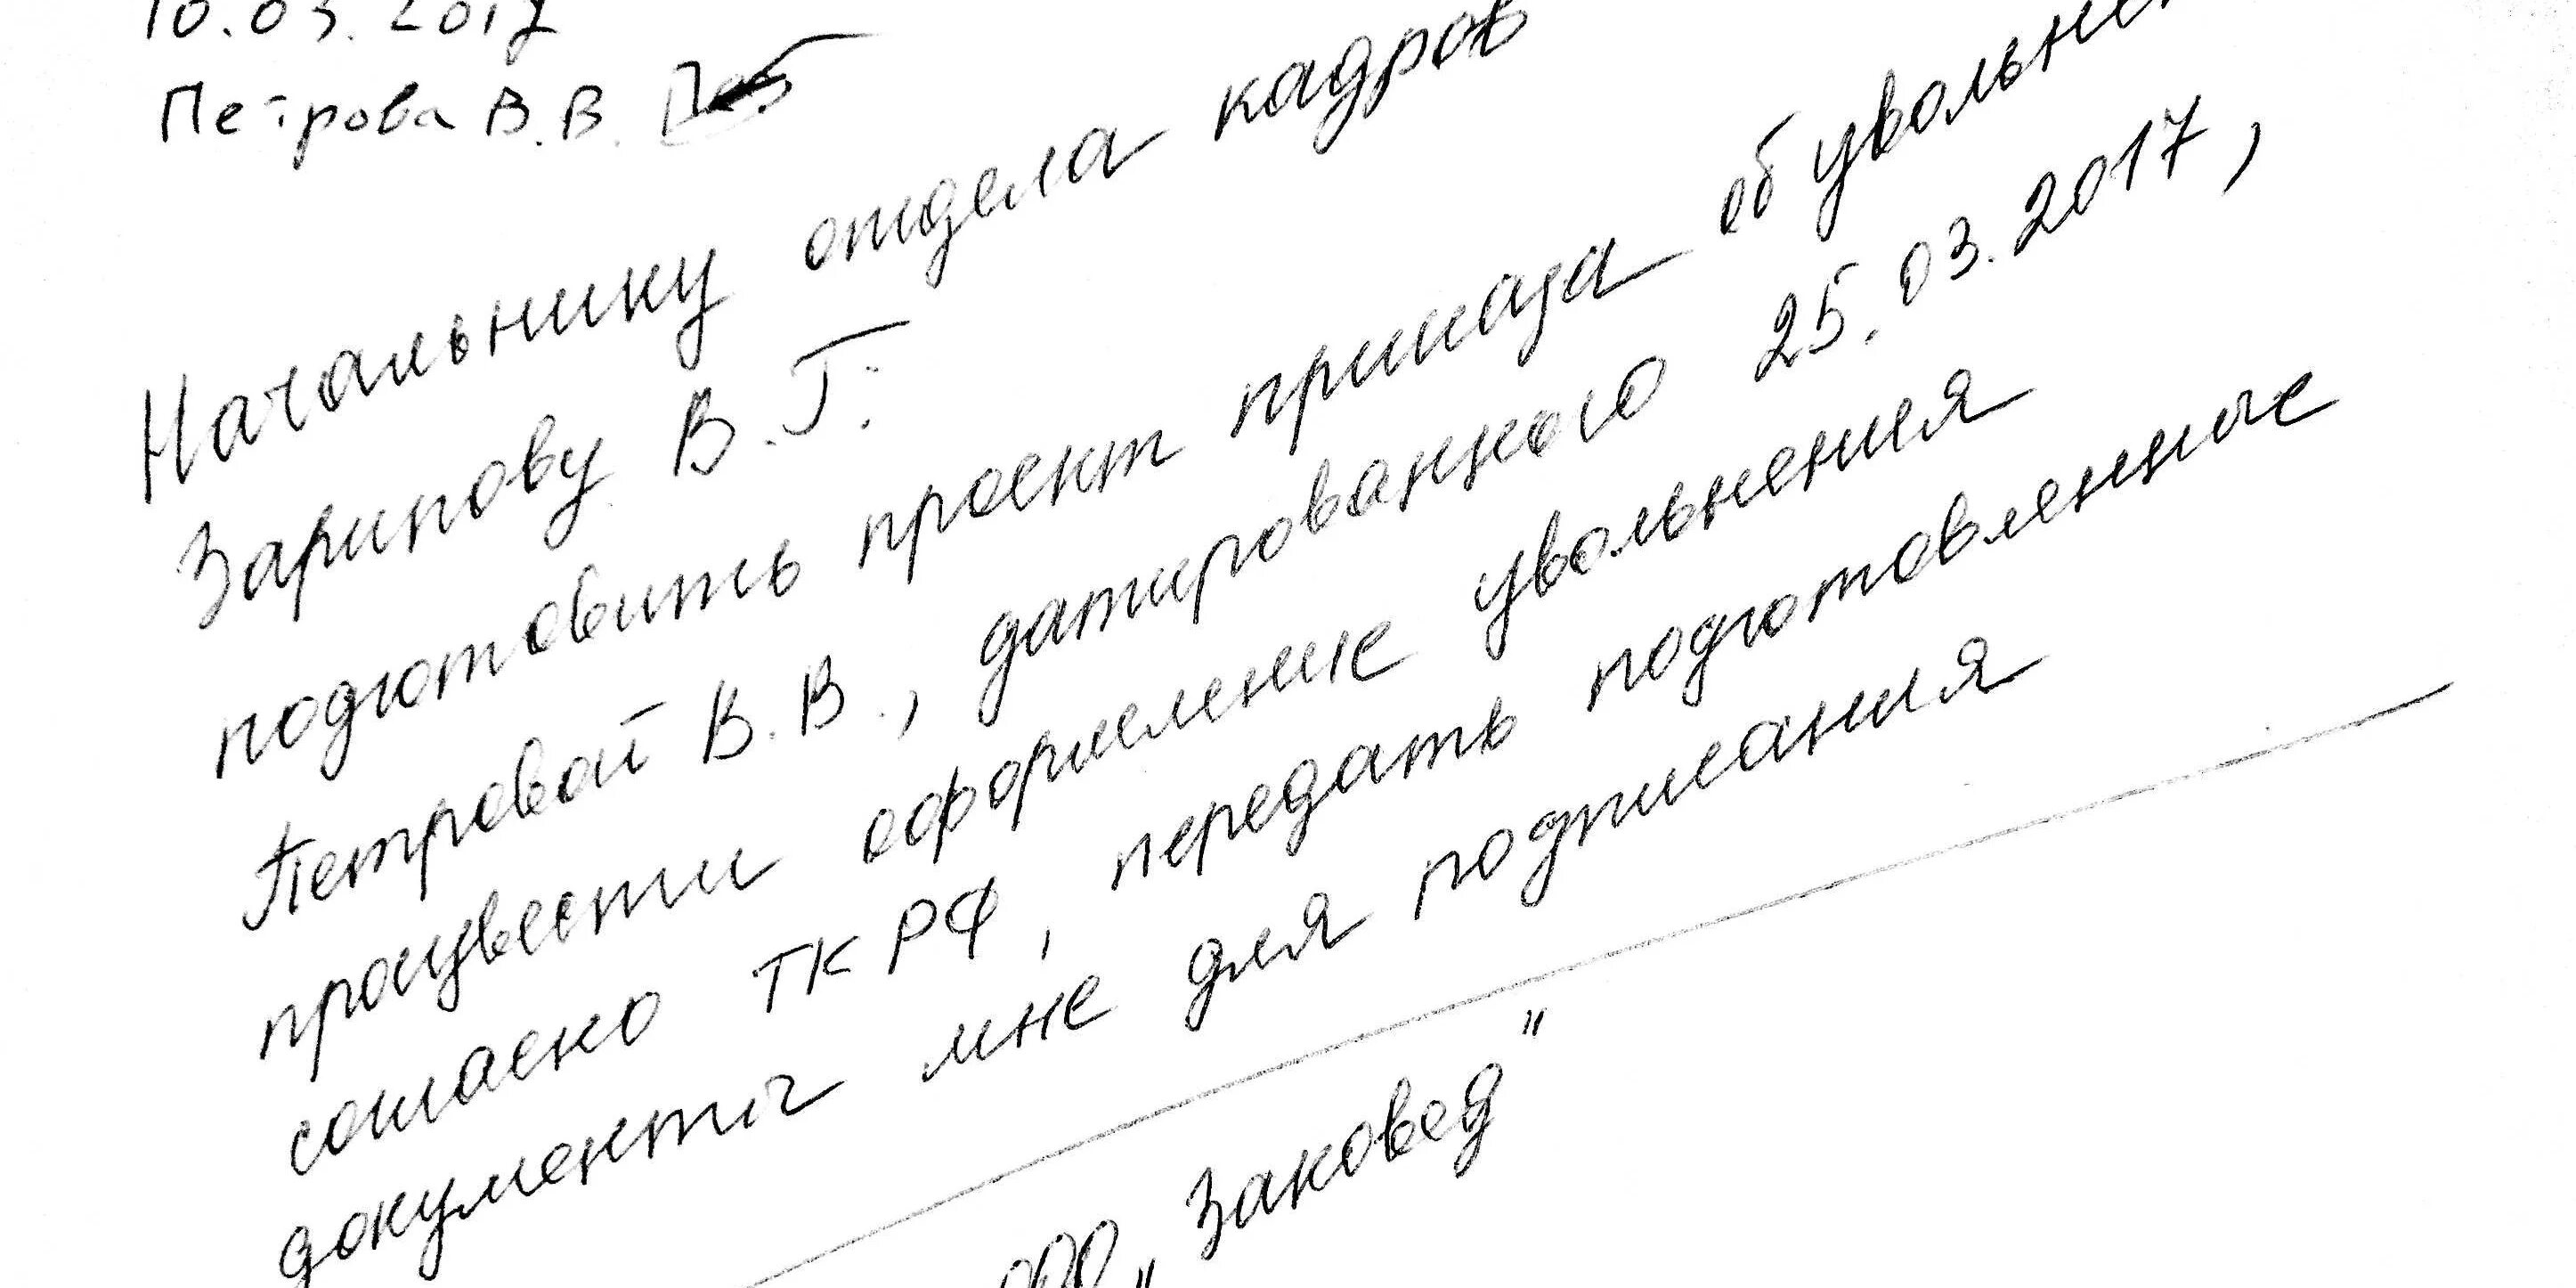 10.03.2017
Петрова В.В.
Начальнику отдела кадров
Зарипову В.Г.:
подготовить проект приказа об увольнен
Петровой В.В., датированного 25.03.2017,
процвести оформление увольнения
согласно ТК РФ, передать подготовленные
документы мне для подписания
ООО „Заковед"